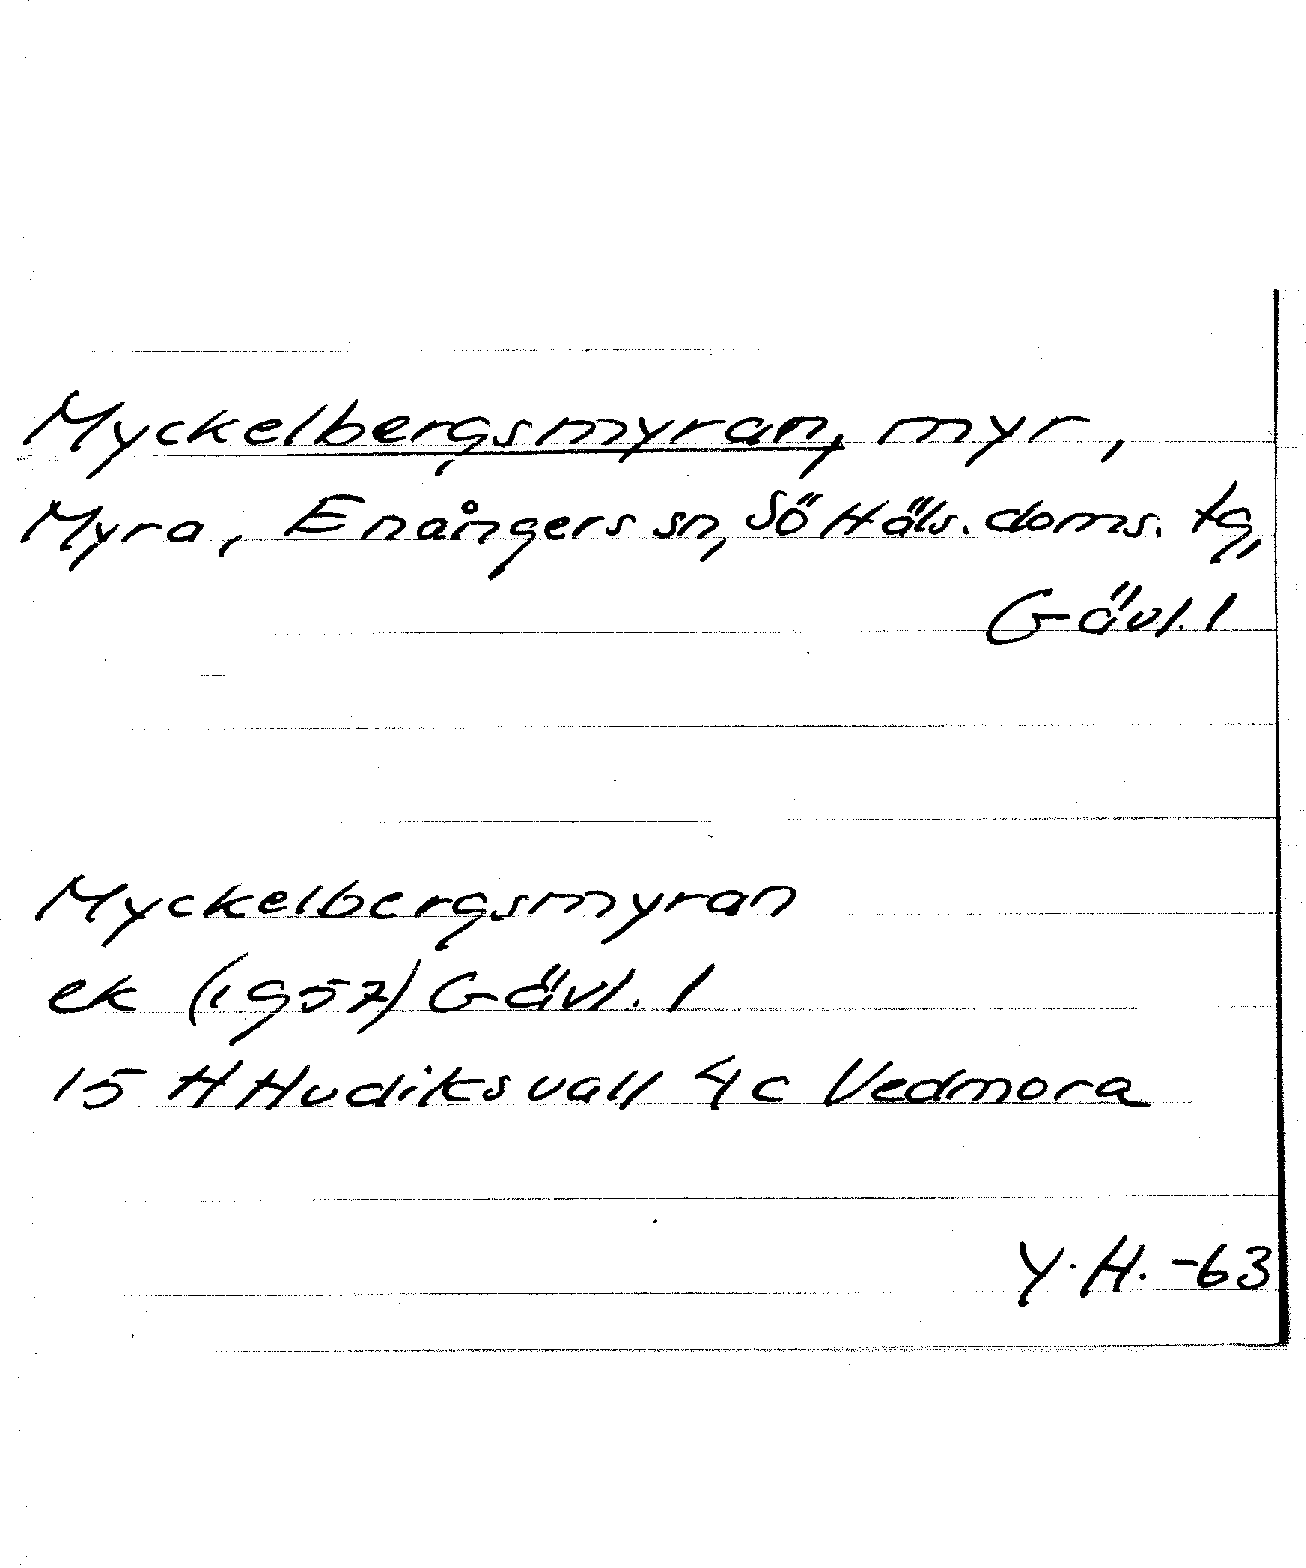 Myckelbergsmyran, myr,
Myra, Enångers sn, Sö Häls. doms. tg,
Gävl. l
Myckelbergsmyran
ek (1957) Gävl. l
15 H Hudiksvall 4 c Vedmora
Y. H. -63